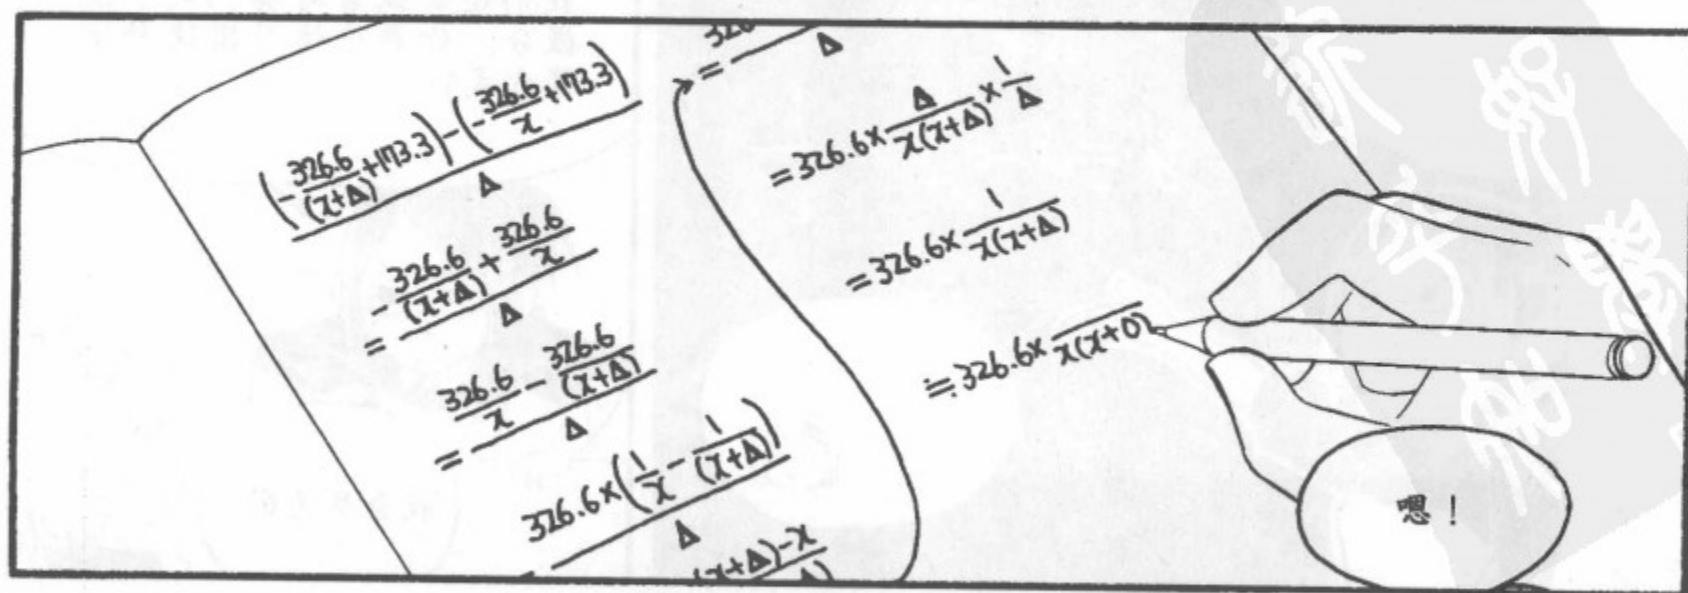 (-326.6/(x+Δ)+173.3)-(-326.6/x+173.3)
Δ
-326.6/(x+Δ)+326.6/x
= Δ
326.6/x-326.6/(x+Δ)
= Δ
326.6×(1/x-1/(x+Δ))
= Δ
(x+Δ)-x
= Δ
=326.6×Δ/x(x+Δ)×1/Δ
=326.6×1/x(x+Δ)
≒326.6×/x(x+0)